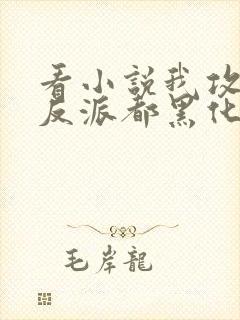 看小説我攻
反派都黑化
毛岸龍